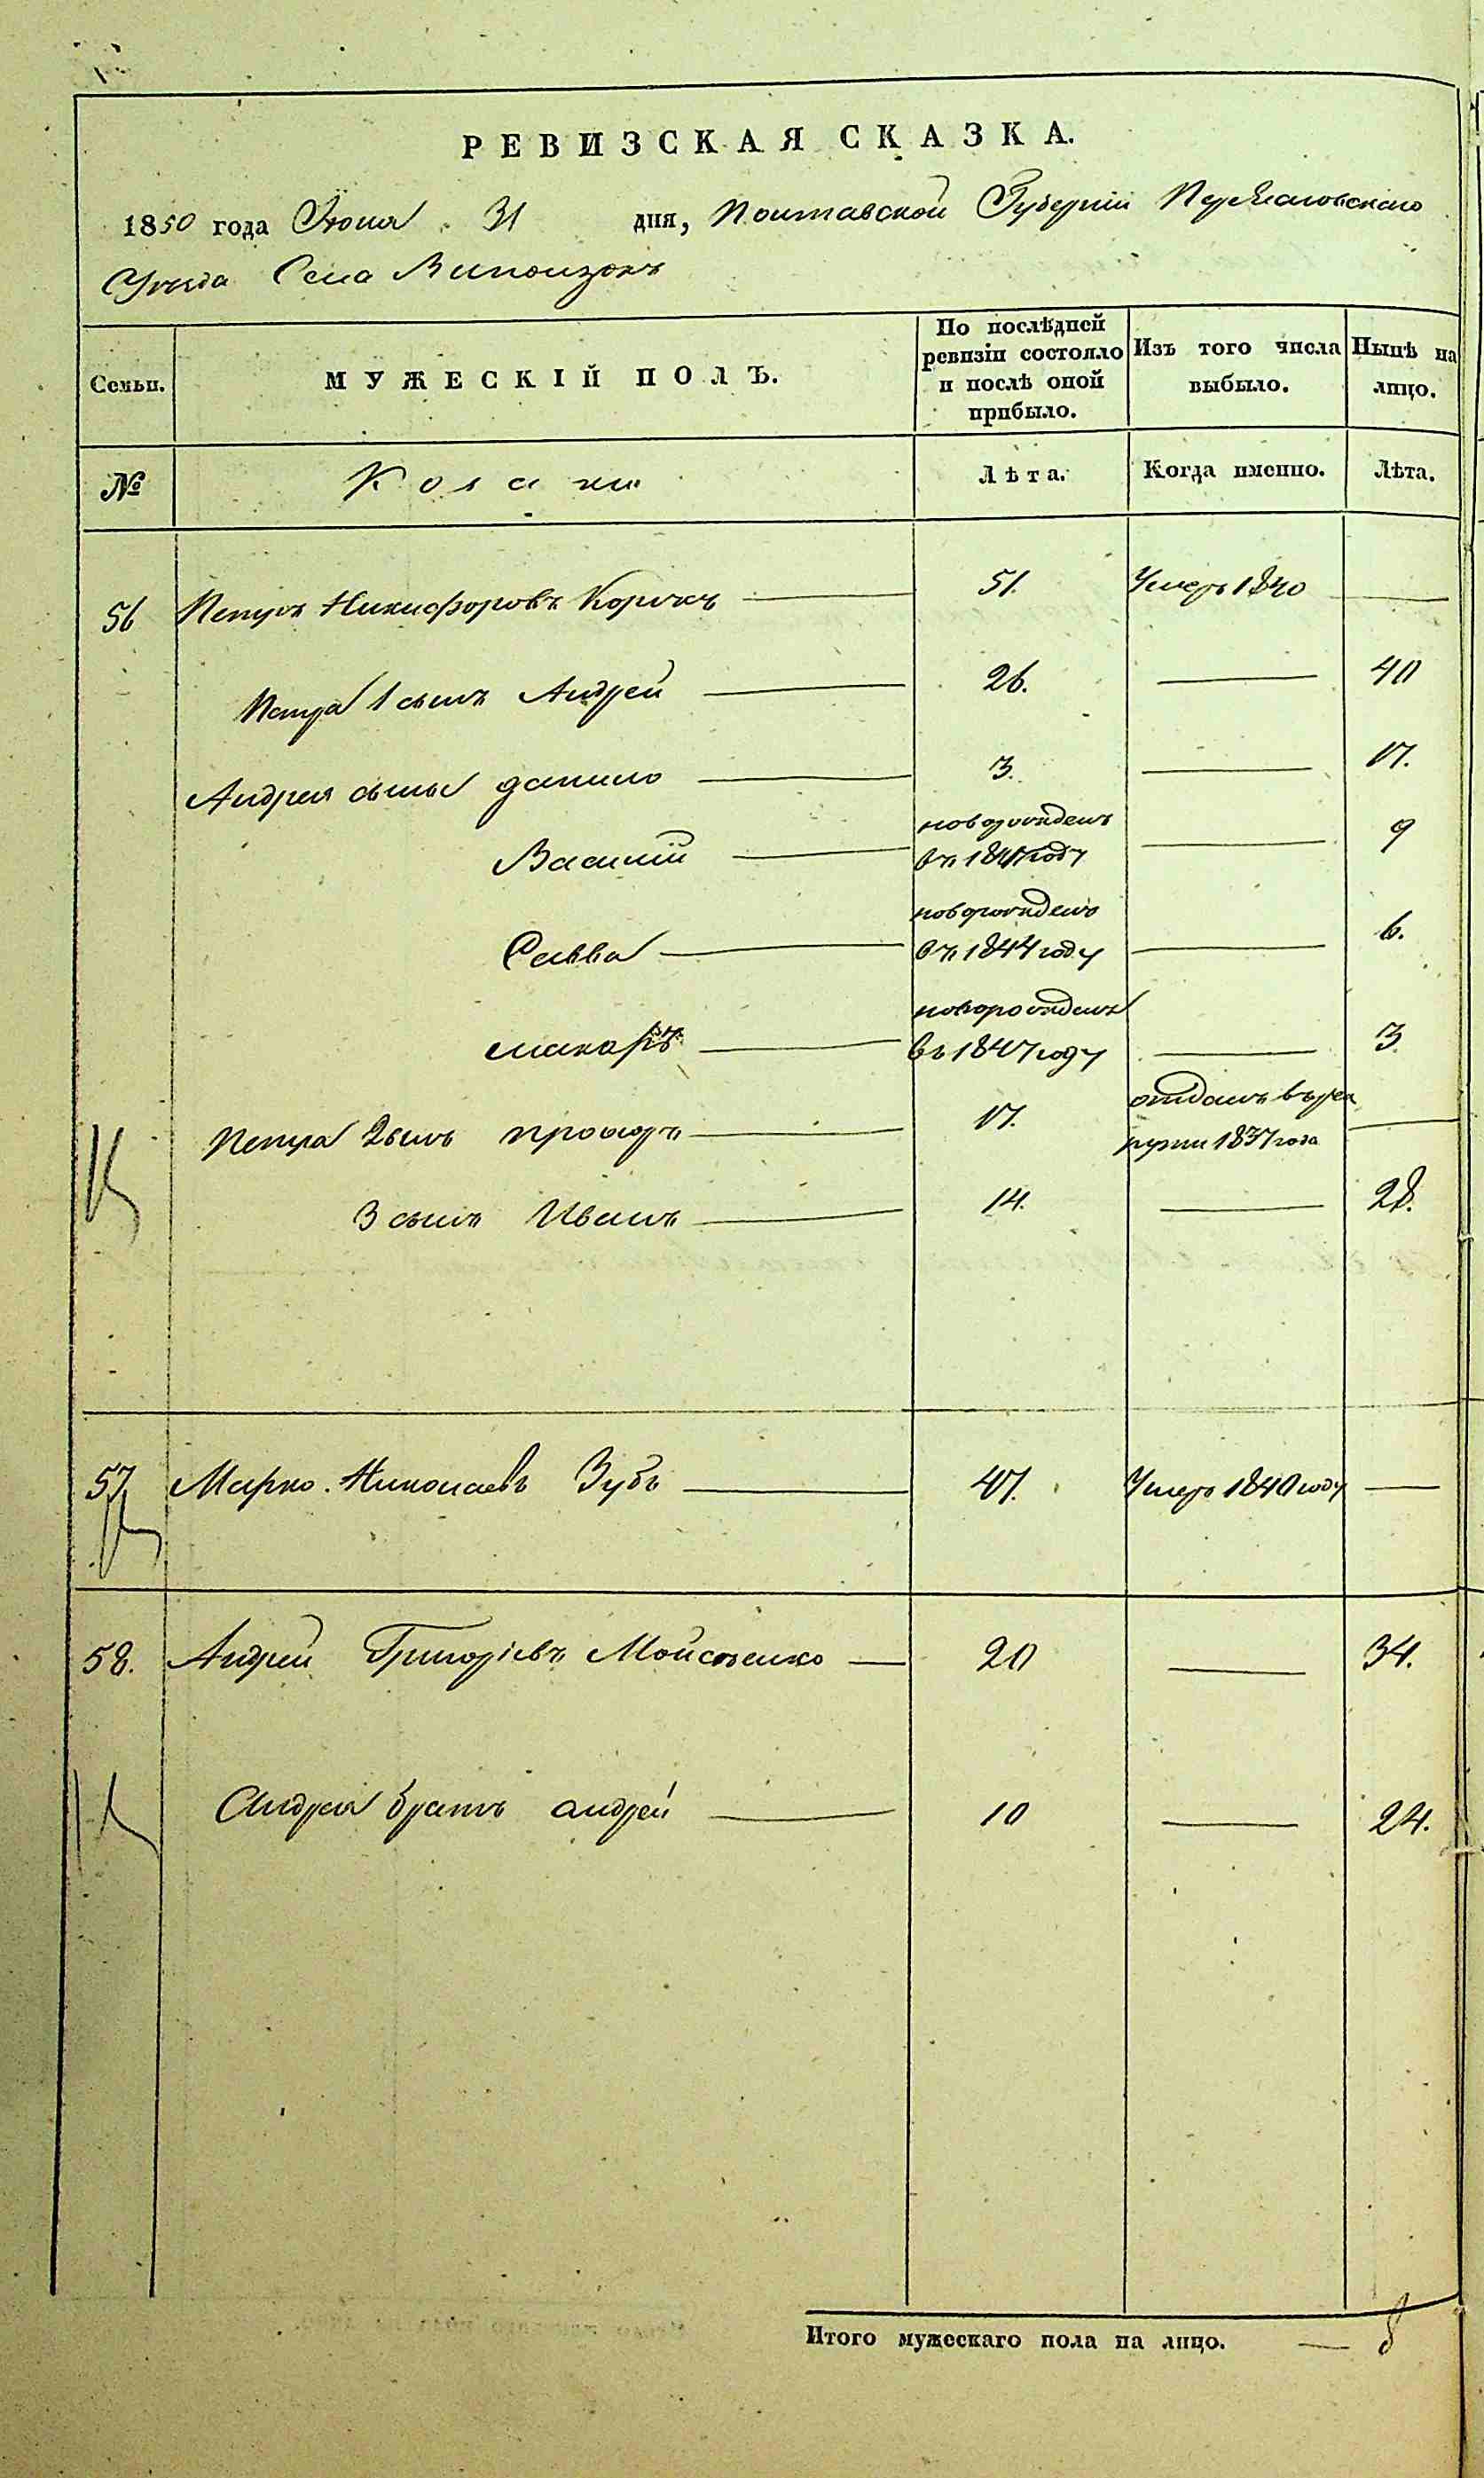 РЕВИЗСКАЯ СКАЗКА.
1850 года Июня 31 дня, Полтавской Губерніи Переяловского
Уезда Села Виползокъ
Семьи.
МУЖЕСКІЙ ПОЛЪ.
По послѣдней ревизіи состояло и послѣ оной прибыло.
Изъ того числа выбыло.
Нынѣ на лицо.
№
Козаки
Лѣта.
Когда именно.
Лѣта.
56 Петръ Никифоровъ 51. Умеръ 1840
Петра 1 сынъ Андрей 26. 40
Андрея сыны данило 3. 17.
новорожденъ
Василій въ 1841 году 9
новорожденъ
Савва въ 1844 году 6.
новорожденъ
макаръ въ 1847 году 3
отданъ въ рек
Петра 2 сынъ прохоръ 17. руты 1837 года
3 сынъ Иванъ 14. 28.
57 Марко Николаевъ Зубъ 47. Умеръ 1840 году
58. Андрей Григоріевъ Мойсѣенко 20 34.
Андрея братъ андрей 10 24.
Итого мужескаго пола на лицо. — 8